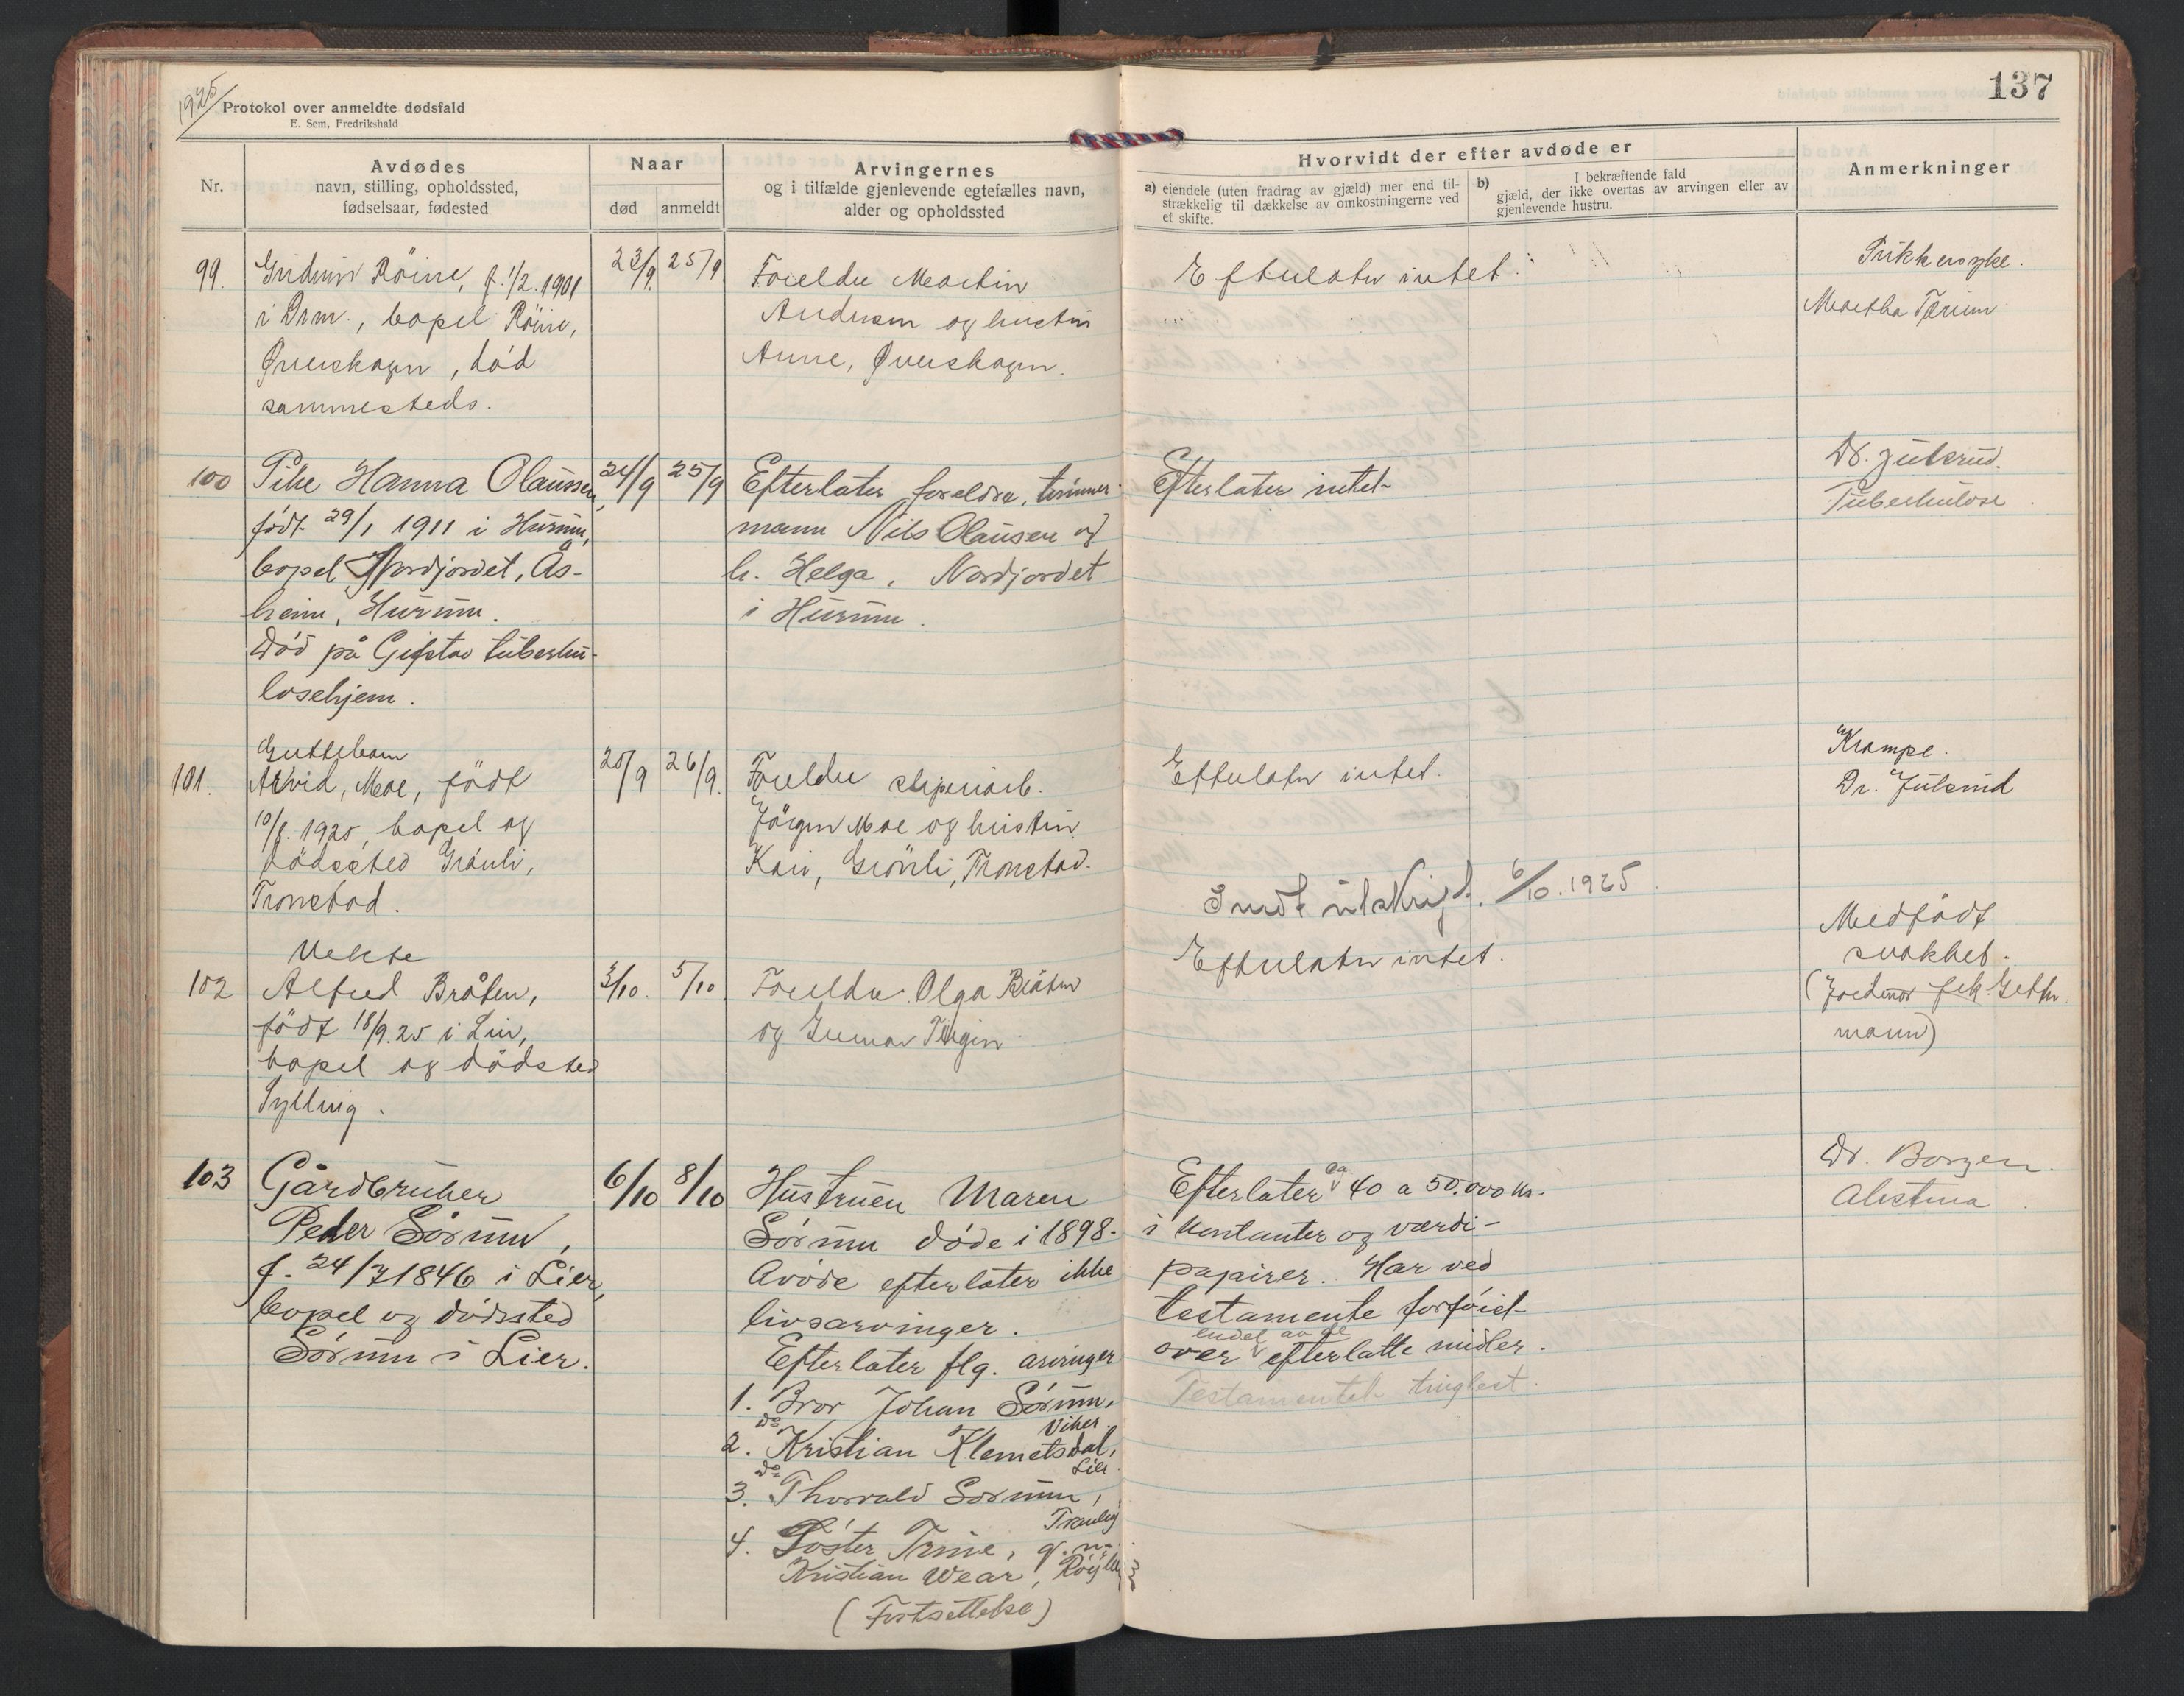 1925
Protokol over anmeldte dødsfald
E. Sem, Fredrikshald
137
Nr.
Avdødes
navn, stilling, opholdssted,
fødselsaar, fødested
Naar
død
anmeldt
Arvingernes
og i tilfælde gjenlevende egtefælles navn,
alder og opholdssted
Hvorvidt der efter avdøde er
a) eiendele (uten fradrag av gjæld) mer end til-
strækkelig til dækkelse av omkostningerne ved
et skifte.
b) I bekræftende fald
gjæld, der ikke overtas av arvingen eller av
gjenlevende hustru.
Anmerkninger
99.
Röine, f. 1/2. 1901
i Drm., bopel Röine,
Øverskogen, död
sammesteds.
23/9.
25/9.
Foreldre Martin
Andersen og hustru
Anne, Øverskogen.
Efterlater intet.
Prikkersyke.
Martha
100
Pike Hanna Olaussen,
født 29/1 1911 i Hurum,
bopel Nordjordet, Ås-
heim, Hurum.
Död på Gifstad tuberku-
losehjem.
24/9
25/9
Efterlater foreldre, tømmer-
mann Nils Olaussen og
h. Helga, Nordjordet
i Hurum.
Efterlater intet
Dr. Julsrud.
Tuberkulose.
101.
Guttebarn
Arvid, Moe, född
10/8. 1925, bopel og
dödssted Grönli,
Tronstad.
25/9
26/9.
Foreldre sliperiarb.
Jörgen Moe og hustru
Kari, Grönli, Tronstad.
Efterlater intet.
Krampe.
Dr. Julsrud
Sendt utskrift. 6/10. 1925.
102
Alfred Bråten,
född 18/9. 25 i Lier,
bopel og dödsted
Sylling.
3/10.
5/10
Foreldre Olga Bråten
og Gunnar
Efterlater intet.
Medfödt
svakhet.
(Jordmor frk. Geth-
mann)
103
Gårdbruker
Peder Sörum,
f. 24/7 1846 i Lier,
bopel og dödssted
Sörum i Lier.
6/10
8/10
Hustruen Maren
Sörum döde i 1898.
Avöde efterlater ikke
livsarvinger.
Efterlater flg. arvinger
1. Bror Johan Sörum,
Viker.
2. do Kristian Klemetsdal,
Lier.
3. do Thorvald Sörum,
Tranby
4. Söster Trine, g. m.
Kristian Wear,
(Fortsettelse)
Efterlater ca 40 a 50.000 kr.
i kontanter og værdi-
papirer. Har ved
testamente forföiet
over endel av de efterlatte midler.
Testamentet tinglest.
Dr. Borgen.